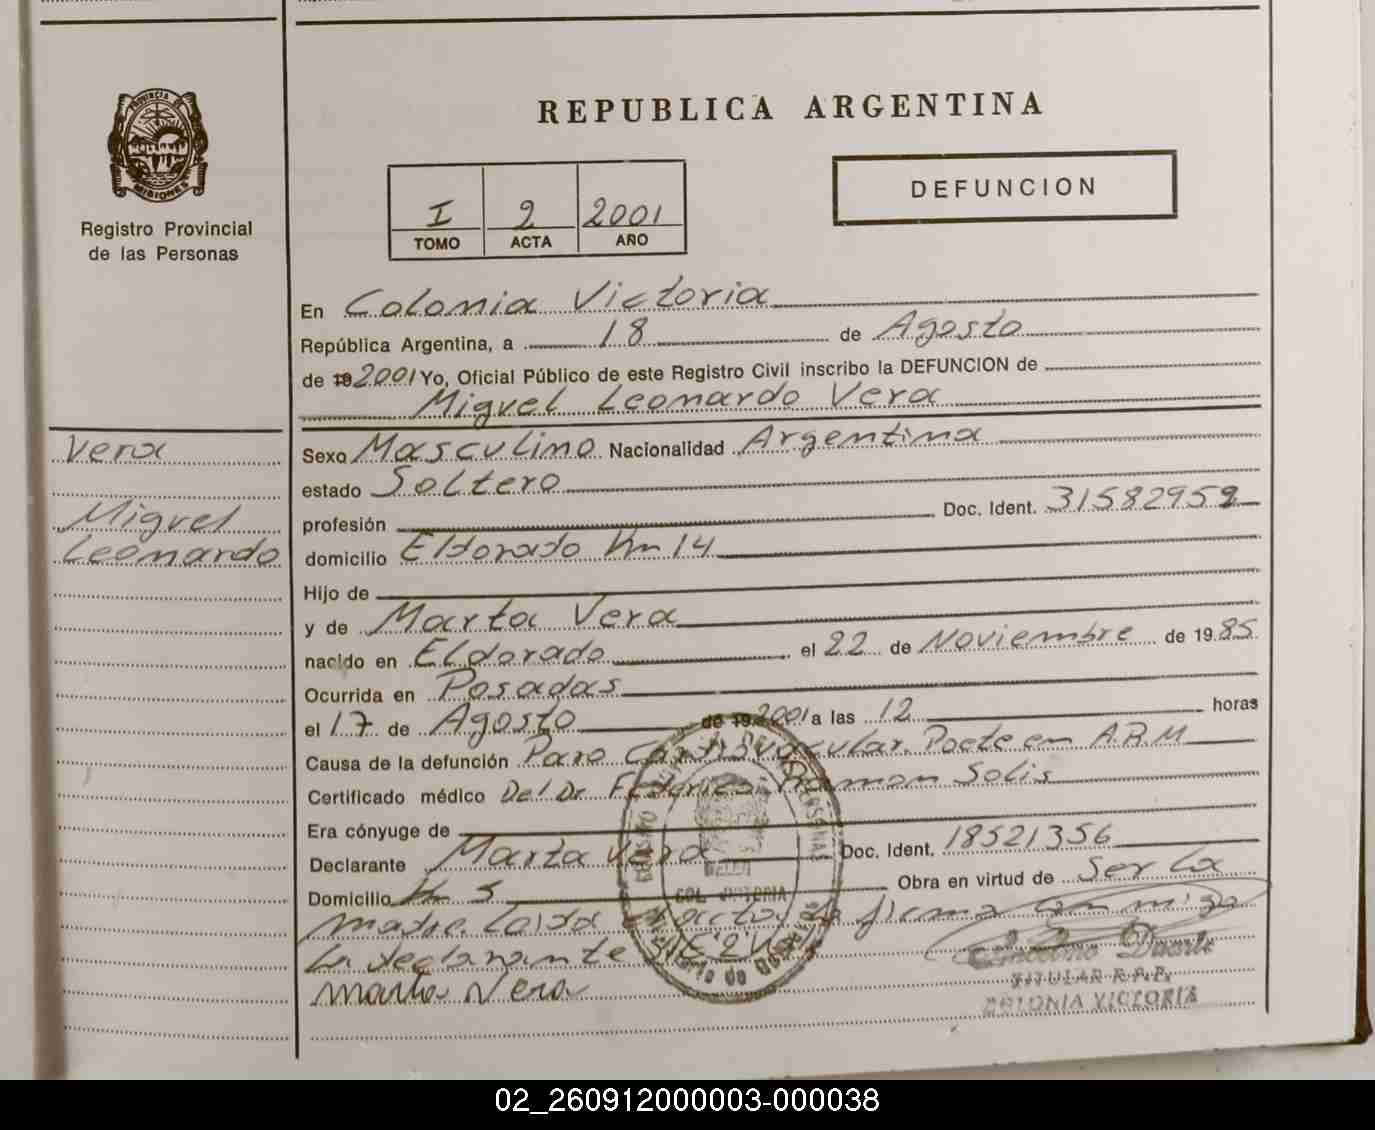 REPUBLICA ARGENTINA
PROVINCIA DE
MISIONES
Registro Provincial
de las Personas
I 2 2001
TOMO ACTA AÑO
DEFUNCION
En Colonia Victoria
República Argentina, a 18 de Agosto
de 19 2001 Yo, Oficial Público de este Registro Civil inscribo la DEFUNCION de
Miguel Leonardo Vera
Vera
Miguel
Leonardo
Sexo Masculino Nacionalidad Argentina
estado Soltero
profesión Doc. Ident. 31582959
domicilio Eldorado Km 14
Hijo de
y de Marta Vera
nacido en Eldorado el 22 de Noviembre de 1985
Ocurrida en Posadas
el 17 de Agosto de 19 2001 a las 12 horas
Causa de la defunción Paro A.R.M
Certificado médico Del Dr Ramon Solis
Era cónyuge de
Declarante Marta Vera Doc. Ident. 18521356
Domicilio Km 5 Obra en virtud de Ser la
madre Leida el acta la firma conmigo
La declarante
Marta Vera
COL. VICTORIA
Duarte
TITULAR R.P.P.
COLONIA VICTORIA
02_260912000003-000038